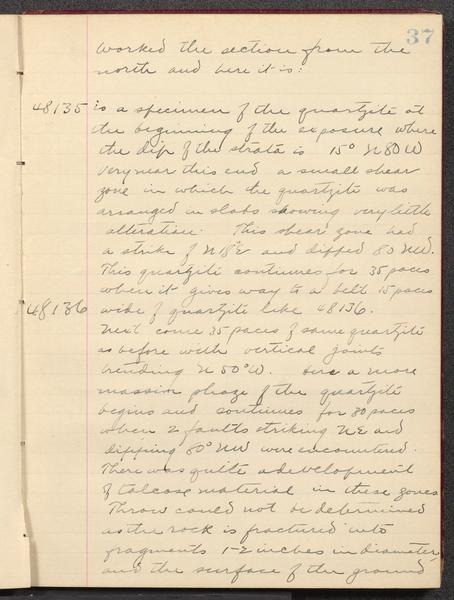 37
worked the section from the
north and here it is:
48135 is a specimen of the quartzite at
the beginning of the exposure where
the dip of the strata is 15° N80W
Very near this end a small shear
zone in which the quartzite was
arranged in slabs showing very little
alteration. This shear zone had
a strike of N18°E and dipped 80 NW.
This quartzite continues for 35 paces
when it gives way to a belt 15 paces
48136 wide of quartzite like 48136.
Next come 35 paces of same quartzite
as before with vertical joints
trending N 50° W. Here a more
massive phase of the quartzite
begins and continues for 80 paces
when 2 faults striking NE and
dipping 80° NW were encountered.
There was quite a development
of talcose material in these zones
Throw could not be determined
as the rock is fractured into
fragments 1-2 inches in diameter
and the surface of the ground